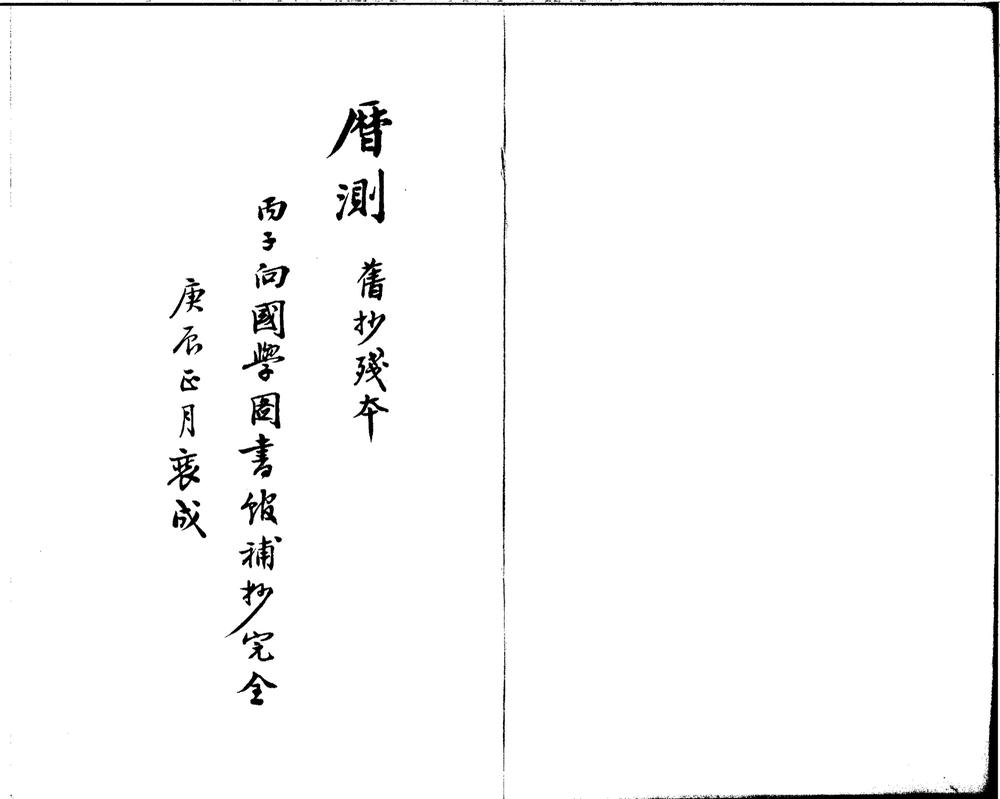 曆測 舊抄殘本
丙子向國學圖書館補抄完全
庚辰正月裝成